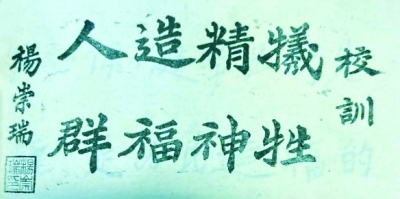 校訓
犧牲
精神
造福
人群
楊崇瑞